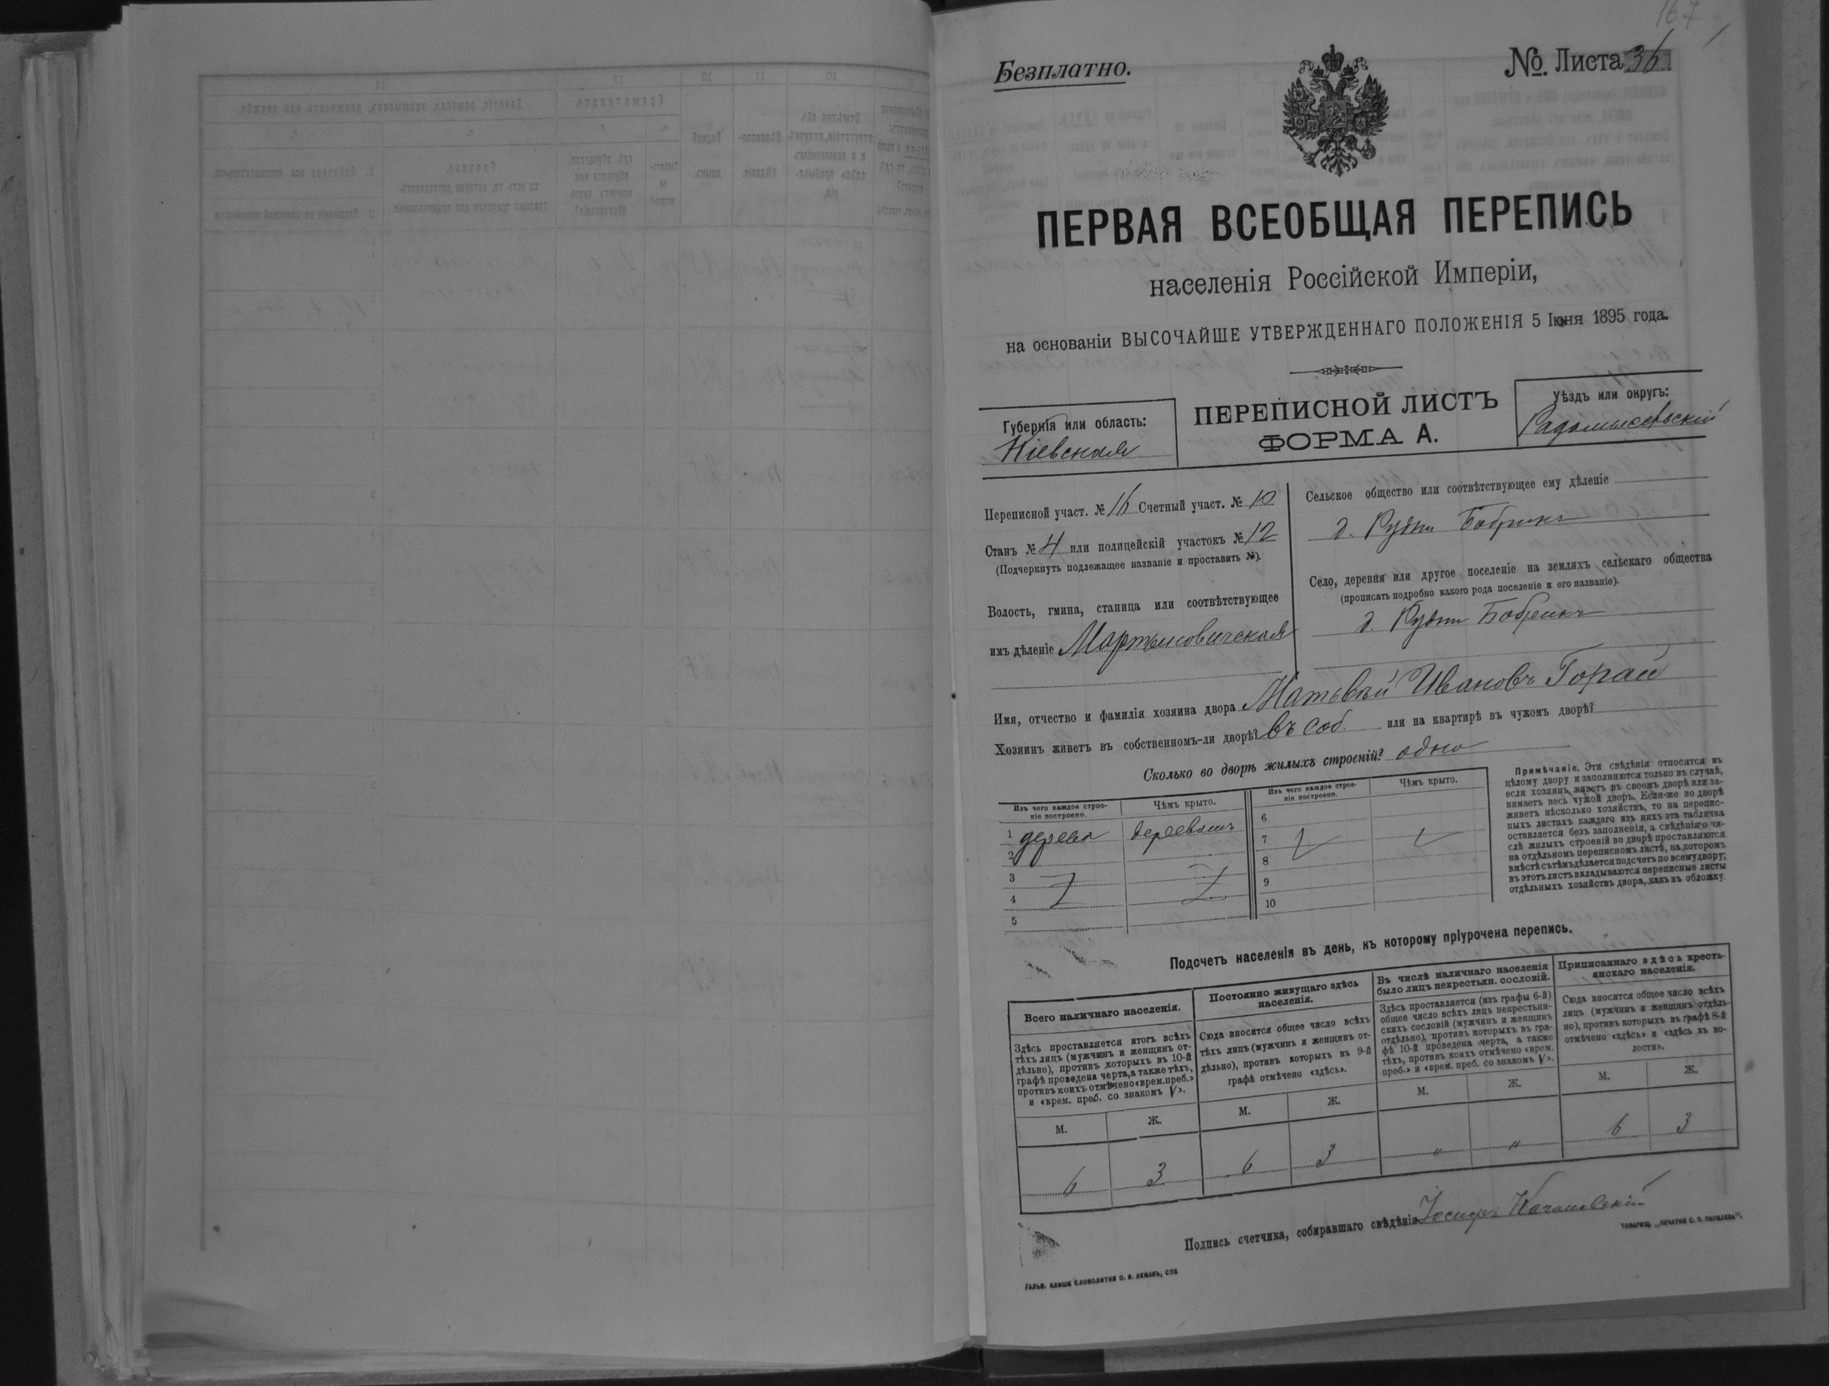 167
Безплатно.
№ Листа 36
ПЕРВАЯ ВСЕОБЩАЯ ПЕРЕПИСЬ
населенія Россійской Имперіи,
на основаніи ВЫСОЧАЙШЕ УТВЕРЖДЕННАГО ПОЛОЖЕНІЯ 5 Іюня 1895 года.
Губернія или область:
Кіевская
ПЕРЕПИСНОЙ ЛИСТЪ
ФОРМА А.
Уѣздъ или округъ:
Радомысльскій
Переписной участ. № 16 Счетный участ. № 10
Станъ № 4 или полицейскій участокъ № 12
(Подчеркнуть подлежащее названіе и проставить №).
Волость, гмина, станица или соотвѣтствующее
имъ дѣленіе Мартыновичская
Сельское общество или соотвѣтствующее ему дѣленіе
д. Рудни Бобрикъ
Село, деревня или другое поселеніе на земляхъ сельскаго общества
(прописать подробно какого рода поселеніе и его названіе).
д. Рудни Бобрикъ
Имя, отчество и фамилія хозяина двора Матвѣй Ивановъ Горай
Хозяинъ живетъ въ собственномъ-ли дворѣ? въ соб. или на квартирѣ въ чужомъ дворѣ?
Сколько во дворѣ жилыхъ строеній? одно
Изъ чего каждое строе-
ніе построено.
Чѣмъ крыто.
Изъ чего каждое строе-
ніе построено.
Чѣмъ крыто.
1 дерева
2
3
4
5
6
7
8
9
10
Примѣчаніе. Эти свѣдѣнія относятся къ
цѣлому двору и заполняются только въ случаѣ,
если хозяинъ живетъ въ своемъ дворѣ или за-
нимаетъ весь чужой дворъ. Если-же во дворѣ
живетъ нѣсколько хозяйствъ, то на перепис-
ныхъ листахъ каждаго изъ нихъ эта табличка
оставляется безъ заполненія, а свѣдѣнія о чи-
слѣ жилыхъ строеній во дворѣ проставляются
на отдѣльномъ переписномъ листѣ, на которомъ
вмѣстѣ съ тѣмъ дѣлается подсчетъ по всему двору;
въ этотъ листъ вкладываются переписные листы
отдѣльныхъ хозяйствъ двора, какъ въ обложку.
Подсчетъ населенія въ день, къ которому пріурочена перепись.
Всего наличнаго населенія.
Здѣсь проставляется итогъ всѣхъ
тѣхъ лицъ (мужчинъ и женщинъ от-
дѣльно), противъ которыхъ въ 10-й
графѣ проведена черта, а также тѣхъ,
противъ коихъ отмѣчено «врем. преб.»
и «врем. преб. со знакомъ V».
М. Ж.
6 3
Постоянно живущаго здѣсь
населенія.
Сюда вносится общее число всѣхъ
тѣхъ лицъ (мужчинъ и женщинъ от-
дѣльно), противъ которыхъ въ 9-й
графѣ отмѣчено «здѣсь».
М. Ж.
6 3
Въ числѣ наличнаго населенія
было лицъ некрестьян. сословій.
Здѣсь проставляется (изъ графы 6-й)
общее число всѣхъ лицъ некрестьян-
скихъ сословій (мужчинъ и женщинъ
отдѣльно), противъ которыхъ въ гра-
фѣ 10-й проведена черта, а также
тѣхъ, противъ коихъ отмѣчено «врем.
преб.» и «врем. преб. со знакомъ V».
М. Ж.
" "
Приписаннаго здѣсь кресть-
янскаго населенія.
Сюда вносится общее число всѣхъ
лицъ (мужчинъ и женщинъ отдѣль-
но), противъ которыхъ въ графѣ 8-й
отмѣчено «здѣсь» и «здѣсь въ во-
лости».
М. Ж.
6 3
Подпись счетчика, собиравшаго свѣдѣнія Іосифъ Качановскій
ГАЛЬВ. КЛИШЕ СЛОВОЛИТНИ О. И. ЛЕМАНЪ, СПБ
ТОВАРИЩ. „ПЕЧАТНЯ С. П. ЯКОВЛЕВА“.